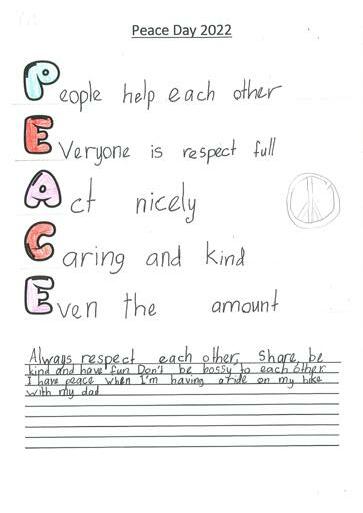 Peace Day 2022
People help each other
Everyone is respect full
Act nicely
Caring and kind
Even the amount
Always respect each other, Share, be
kind and have fun Don't be bossy to each other
I have peace when I'm having a ride on my bike
with my dad